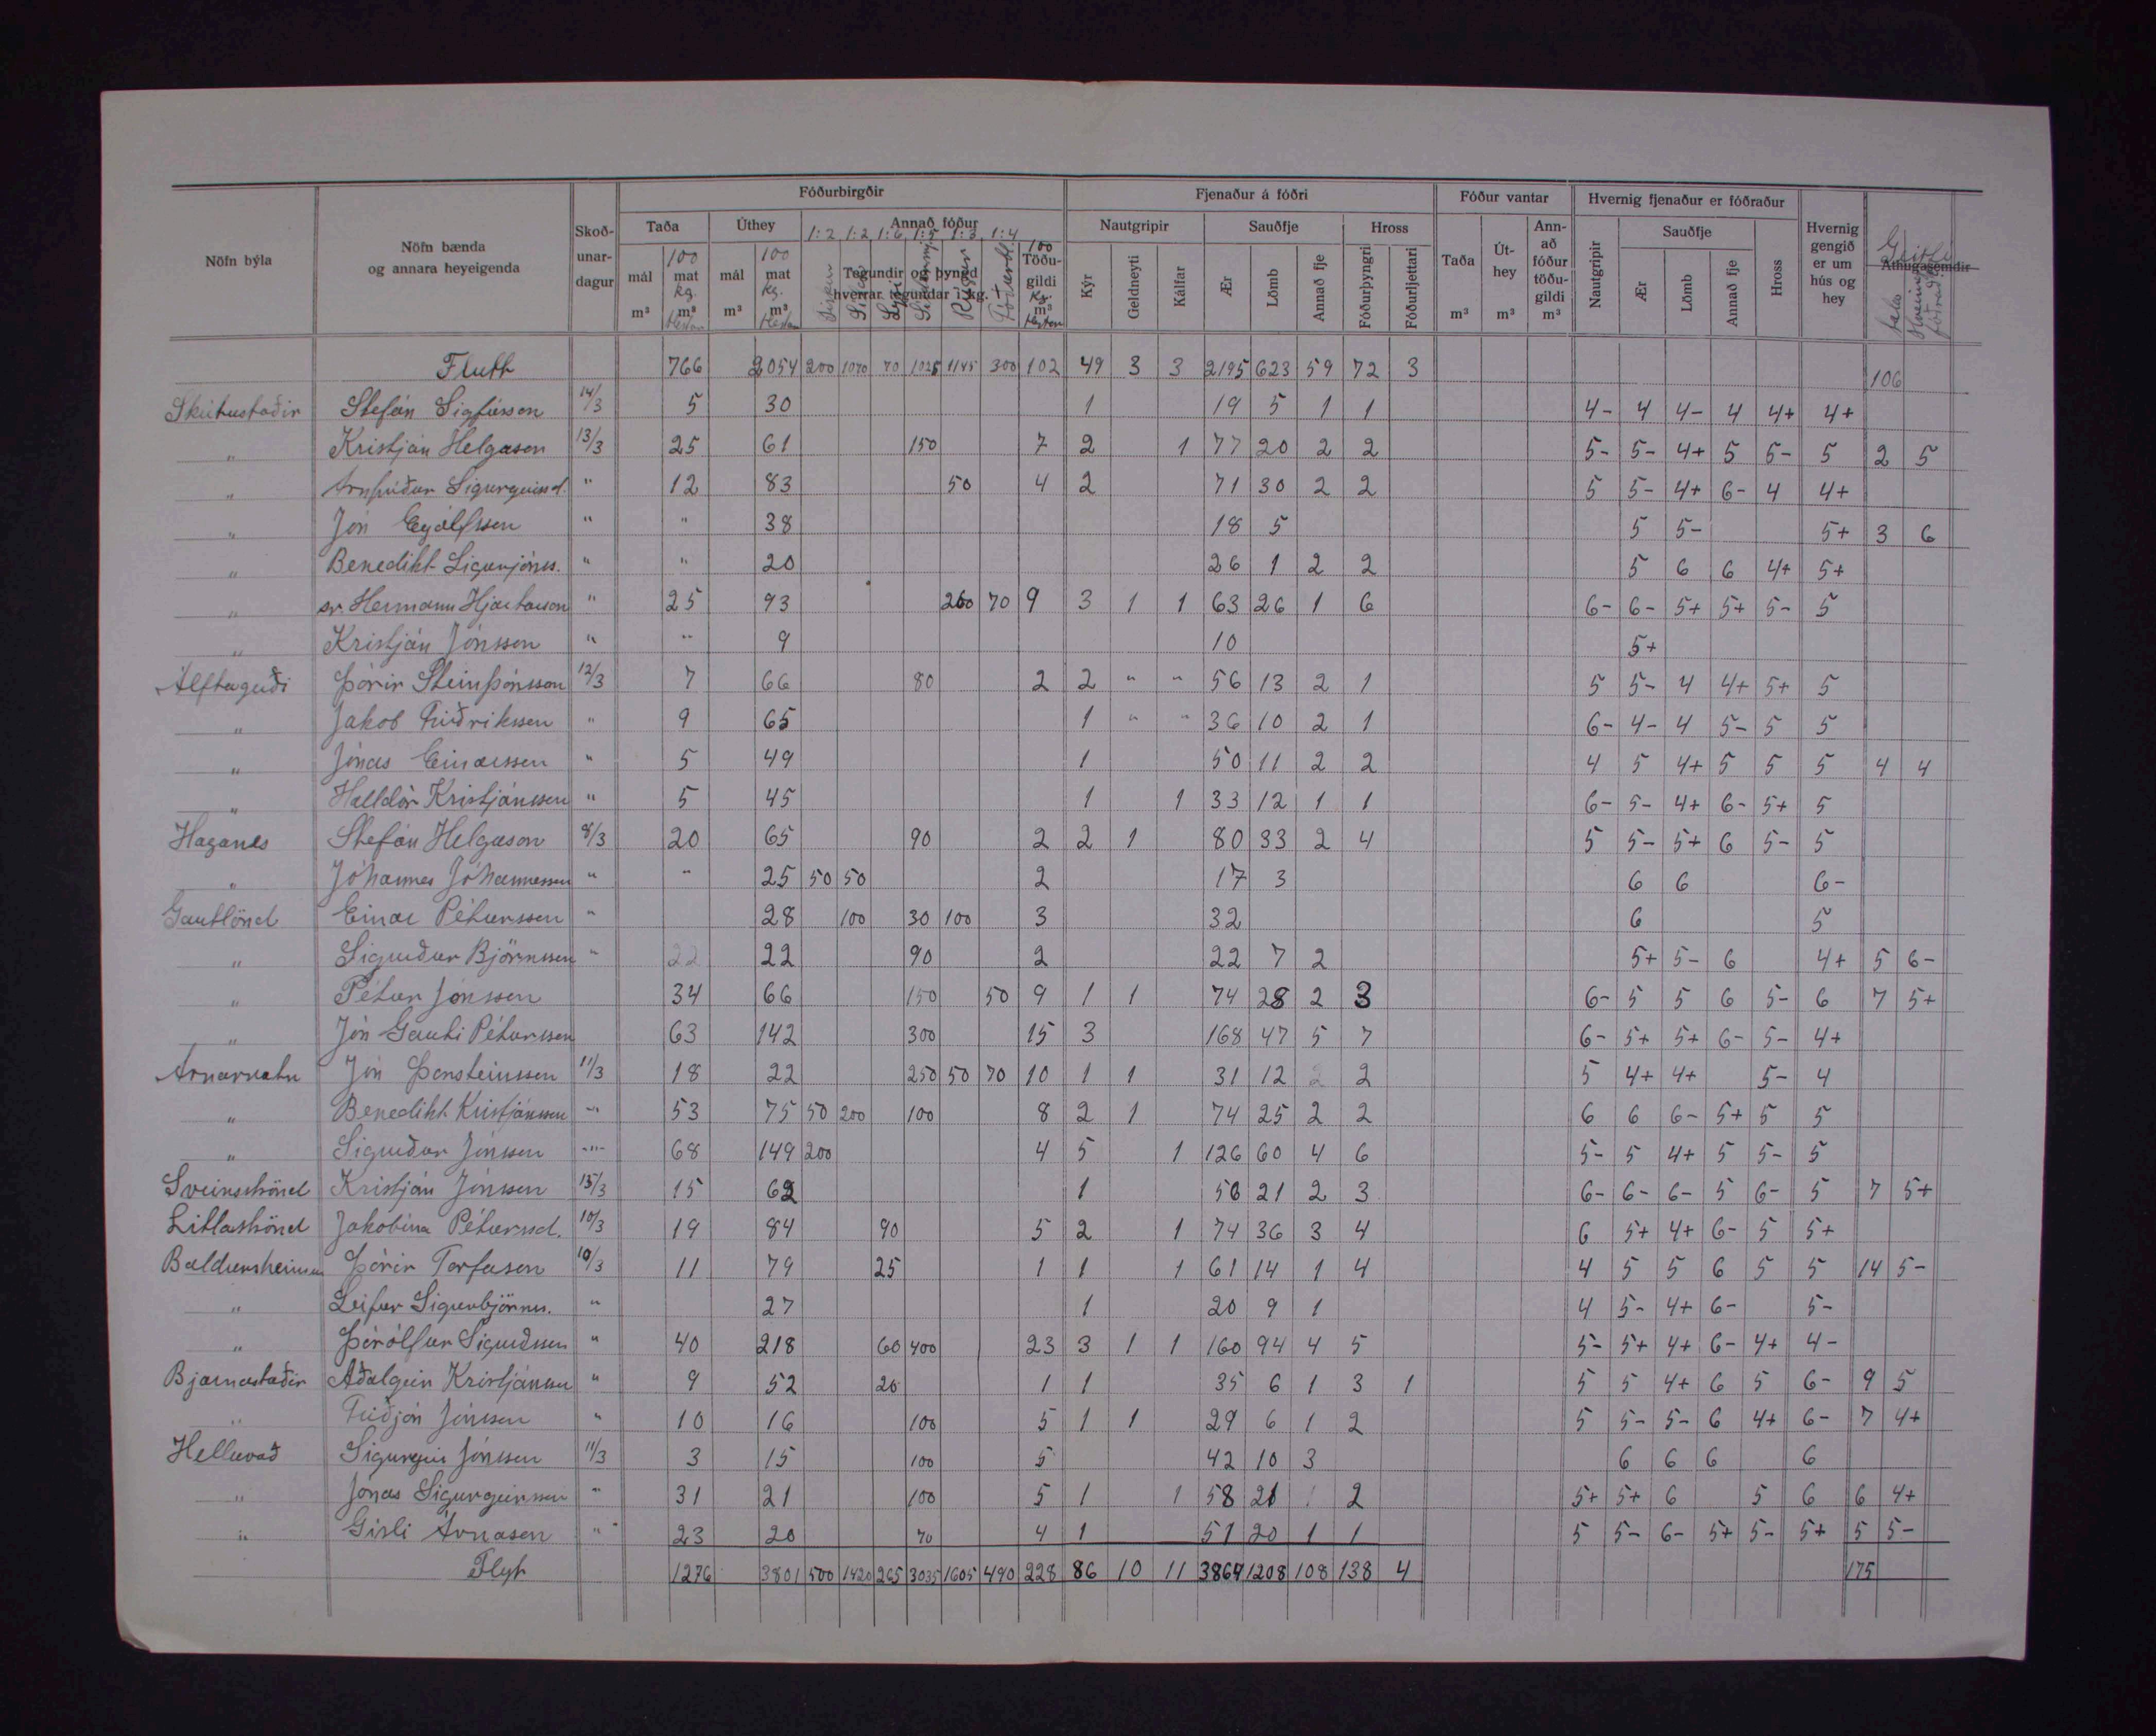 Nöfn býla
Nöfn bænda og annara heyeigenda
Skoð-unar-dagur
Fóðurbirgðir
Fjenaður á fóðri
Fóður vantar
Hvernig fjenaður er fóðraður
Hvernig gengið er um hús og hey
Athugasemdir
Taða Úthey Annað fóður
Nautgripir Sauðfje Hross
Taða Út-hey Ann-að fóður töðu-gildi
Nautgripir Sauðfje Hross
1:2 1:2 1:6 1:5 1:3 1:4
mál m³ 100 mat kg. m³ mál m³ 100 mat kg. m³
Tegundir og þyngd hverrar tegundar í kg.
Síld Rúgur
100 Töðu-gildi kg. m³
Kýr Geldneyti Kálfar Ær Lömb Annað fje Fóðurþyngri Fóðurljettari
m³ m³ m³
Ær Lömb Annað fje
Geitfé tala
Flutt 766 2054 200 1070 70 1025 1145 300 102 49 3 3 2195 623 59 72 3 106
Skútustaðir Stefán Sigfússon 14/3 5 30 1 19 5 1 1 4- 4 4- 4 4+ 4+
" Kristján Helgason 13/3 25 61 150 7 2 1 77 20 2 2 5- 5- 4+ 5 5- 5 2 5
" Arnfríður Sigurgeirsd. " 12 83 50 4 2 71 30 2 2 5 5- 4+ 6- 4 4+
" Jón Eyjólfsson " " 38 18 5 5 5- 5+ 3 6
" Benedikt Sigurjónss. " " 20 26 1 2 2 5 6 6 4+ 5+
" sr. Hermann Hjartarson " 25 93 260 70 9 3 1 1 63 26 1 6 6- 6- 5+ 5+ 5- 5
" Kristján Jónsson " " 9 10 5+
Álftagerði Þórir Steinþórsson 12/3 7 66 80 2 2 " " 56 13 2 1 5 5- 4 4+ 5+ 5
" Jakob Friðriksson " 9 65 1 " " 36 10 2 1 6- 4- 4 5- 5 5
" Jónas Einarsson " 5 49 1 50 11 2 2 4 5 4+ 5 5 5 4 4
" Halldór Kristjánsson " 5 45 1 1 33 12 1 1 6- 5- 4+ 6- 5+ 5
Haganes Stefán Helgason 8/3 20 65 90 2 2 1 80 33 2 4 5 5- 5+ 6 5- 5
" Jóhannes Jóhannesson " " 25 50 50 2 17 3 6 6 6-
Gautlönd Einar Pétursson " 28 100 30 100 3 32 6 5
" Sigurður Björnsson " 22 22 90 2 22 7 2 5+ 5- 6 4+ 5 6-
" Pétur Jónsson 34 66 150 50 9 1 1 74 28 2 3 6- 5 5 6 5- 6 7 5+
" Jón Gauti Pétursson 63 142 300 15 3 168 47 5 7 6- 5+ 5+ 6- 5- 4+
Arnarvatn Jón Þorsteinsson 11/3 18 22 250 50 70 10 1 1 31 12 2 2 5 4+ 4+ 5- 4
" Benedikt Kristjánsson " 53 75 50 200 100 8 2 1 74 25 2 2 6 6 6- 5+ 5 5
" Sigurður Jónsson " 68 149 200 4 5 1 126 60 4 6 5- 5 4+ 5 5- 5
Sveinsströnd Kristján Jónsson 15/3 15 62 1 56 21 2 3 6- 6- 6- 5 6- 5 7 5+
Litlaströnd Jakobína Pétursd. 10/3 19 84 90 5 2 1 74 36 3 4 6 5+ 4+ 6- 5 5+
Baldursheimur Þórir Torfason 10/3 11 79 25 1 1 1 61 14 1 4 4 5 5 6 5 5 14 5-
" Leifur Sigurbjörnss. " 27 1 20 9 1 4 5- 4+ 6- 5-
" Þórólfur Sigurðsson " 40 218 60 400 23 3 1 1 160 94 4 5 5- 5+ 4+ 6- 4+ 4-
Bjarnastaðir Aðalgeir Kristjánsson " 9 52 20 1 1 35 6 1 3 1 5 5 4+ 6 5 6- 9 5
" Friðjón Jónsson " 10 16 100 5 1 1 29 6 1 2 5 5- 5- 6 4+ 6- 7 4+
Helluvað Sigurgeir Jónsson 11/3 3 15 100 5 42 10 3 6 6 6 6
" Jónas Sigurgeirsson " 31 21 100 5 1 1 58 21 1 2 5+ 5+ 6 5 6 6 4+
" Gísli Árnason " 23 20 70 4 1 51 20 1 1 5 5- 6- 5+ 5- 5+ 5 5-
Flyt 1276 3801 500 1420 265 3035 1605 490 228 86 10 11 3864 1208 108 138 4 175